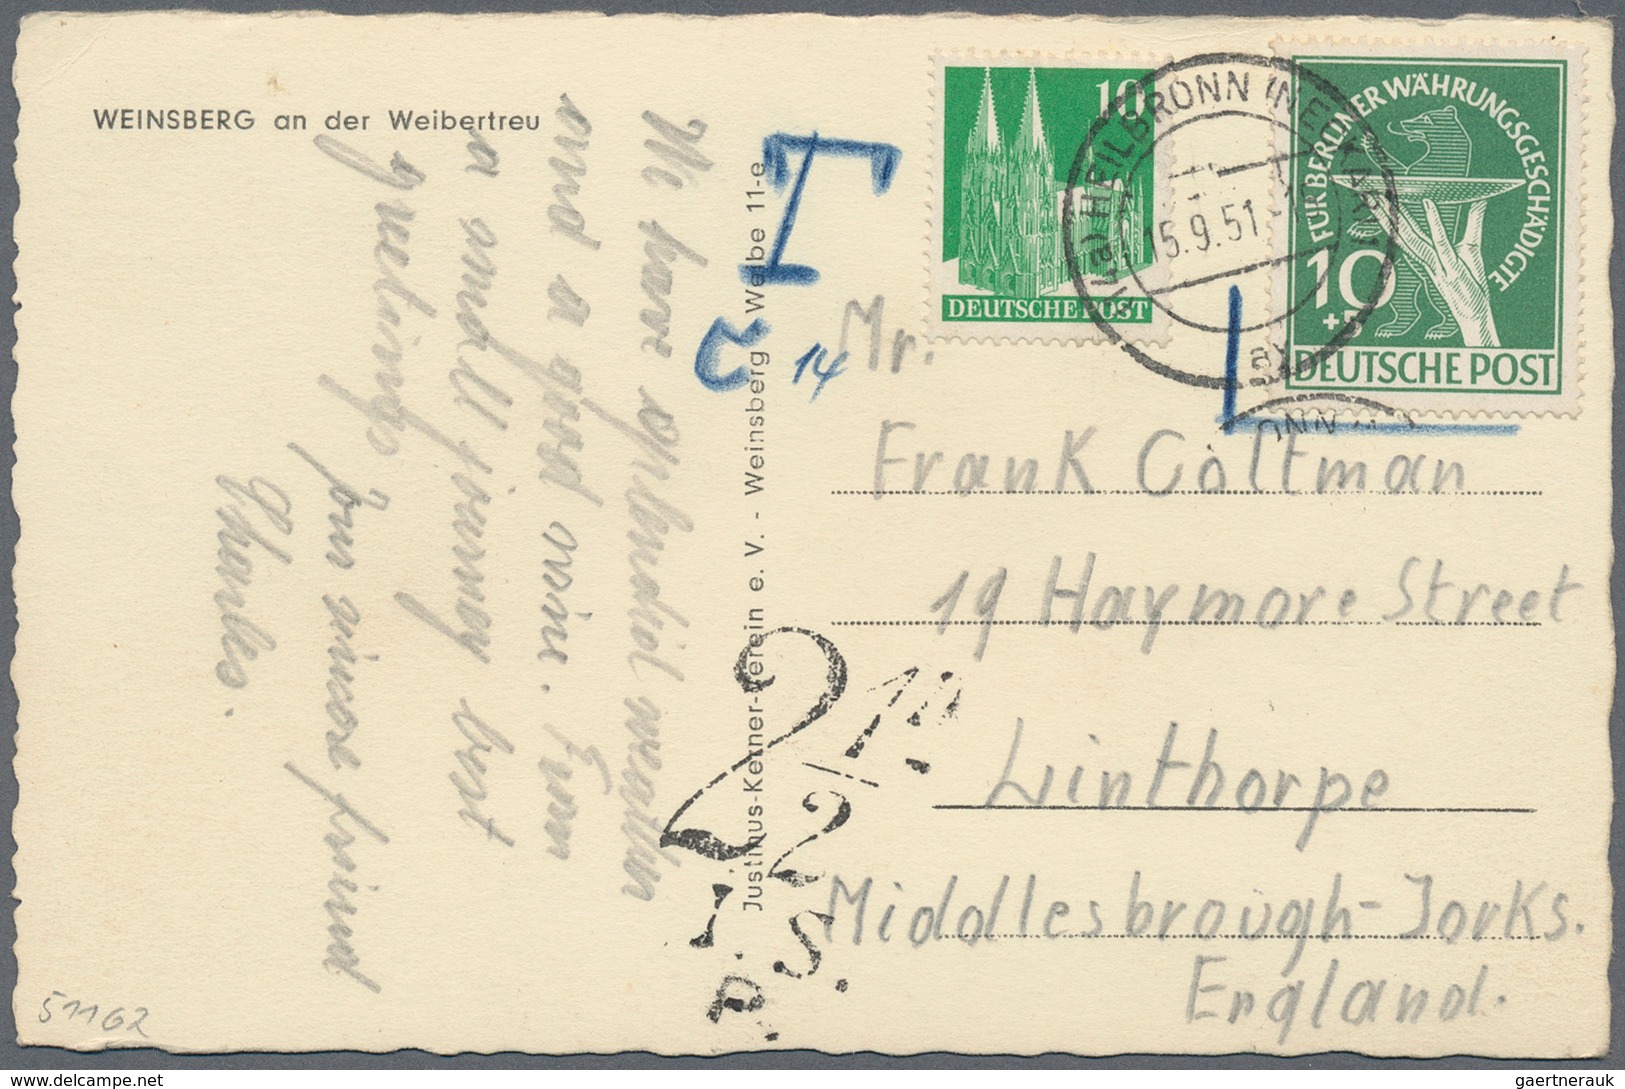 WEINSBERG an der Weibertreu
We have splendid weather
and a good wine. From
a small journey best
greetings
Your sincere friend
Charles.
Justinus-Kerner-Verein e. V. - Weinsberg Weibe 11-e
T
14
10
DEUTSCHE POST
(Va) HEILBRONN (NECKAR) 1
15.9.51
FÜR BERLINER WÄHRUNGSGESCHÄDIGTE
10
+5
DEUTSCHE POST
Mr.
Frank Coltman
19 Haymore Street
Linthorpe
Middlesbrough-Jorks.
England.
2 1/2 D
T.
P.S.
51162
gaertnerauk